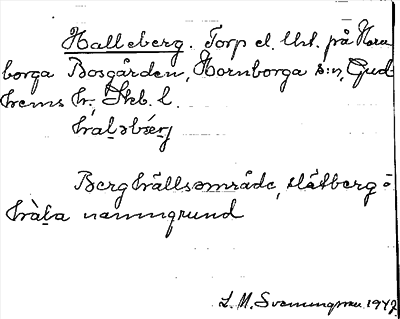 Halleberg. Torp el. Uts. på Horn
borga Bosgården, Hornborga s:n, Gud
hems h., Skb. l.
hal₂ɔbærj
Berghällsområde, slätberg =
hàl₂a namngrund
L. M. Svenungsson 1947.